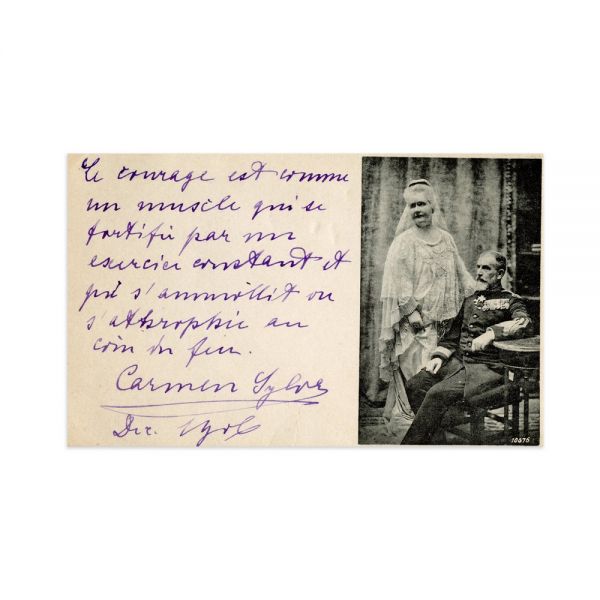 Le courage est comme
un muscle qui se
fortifie par un
exercice constant et
qui s'ammollit ou
s'atrophie au
coin du feu.
Carmen Sylva
Dec.
10676